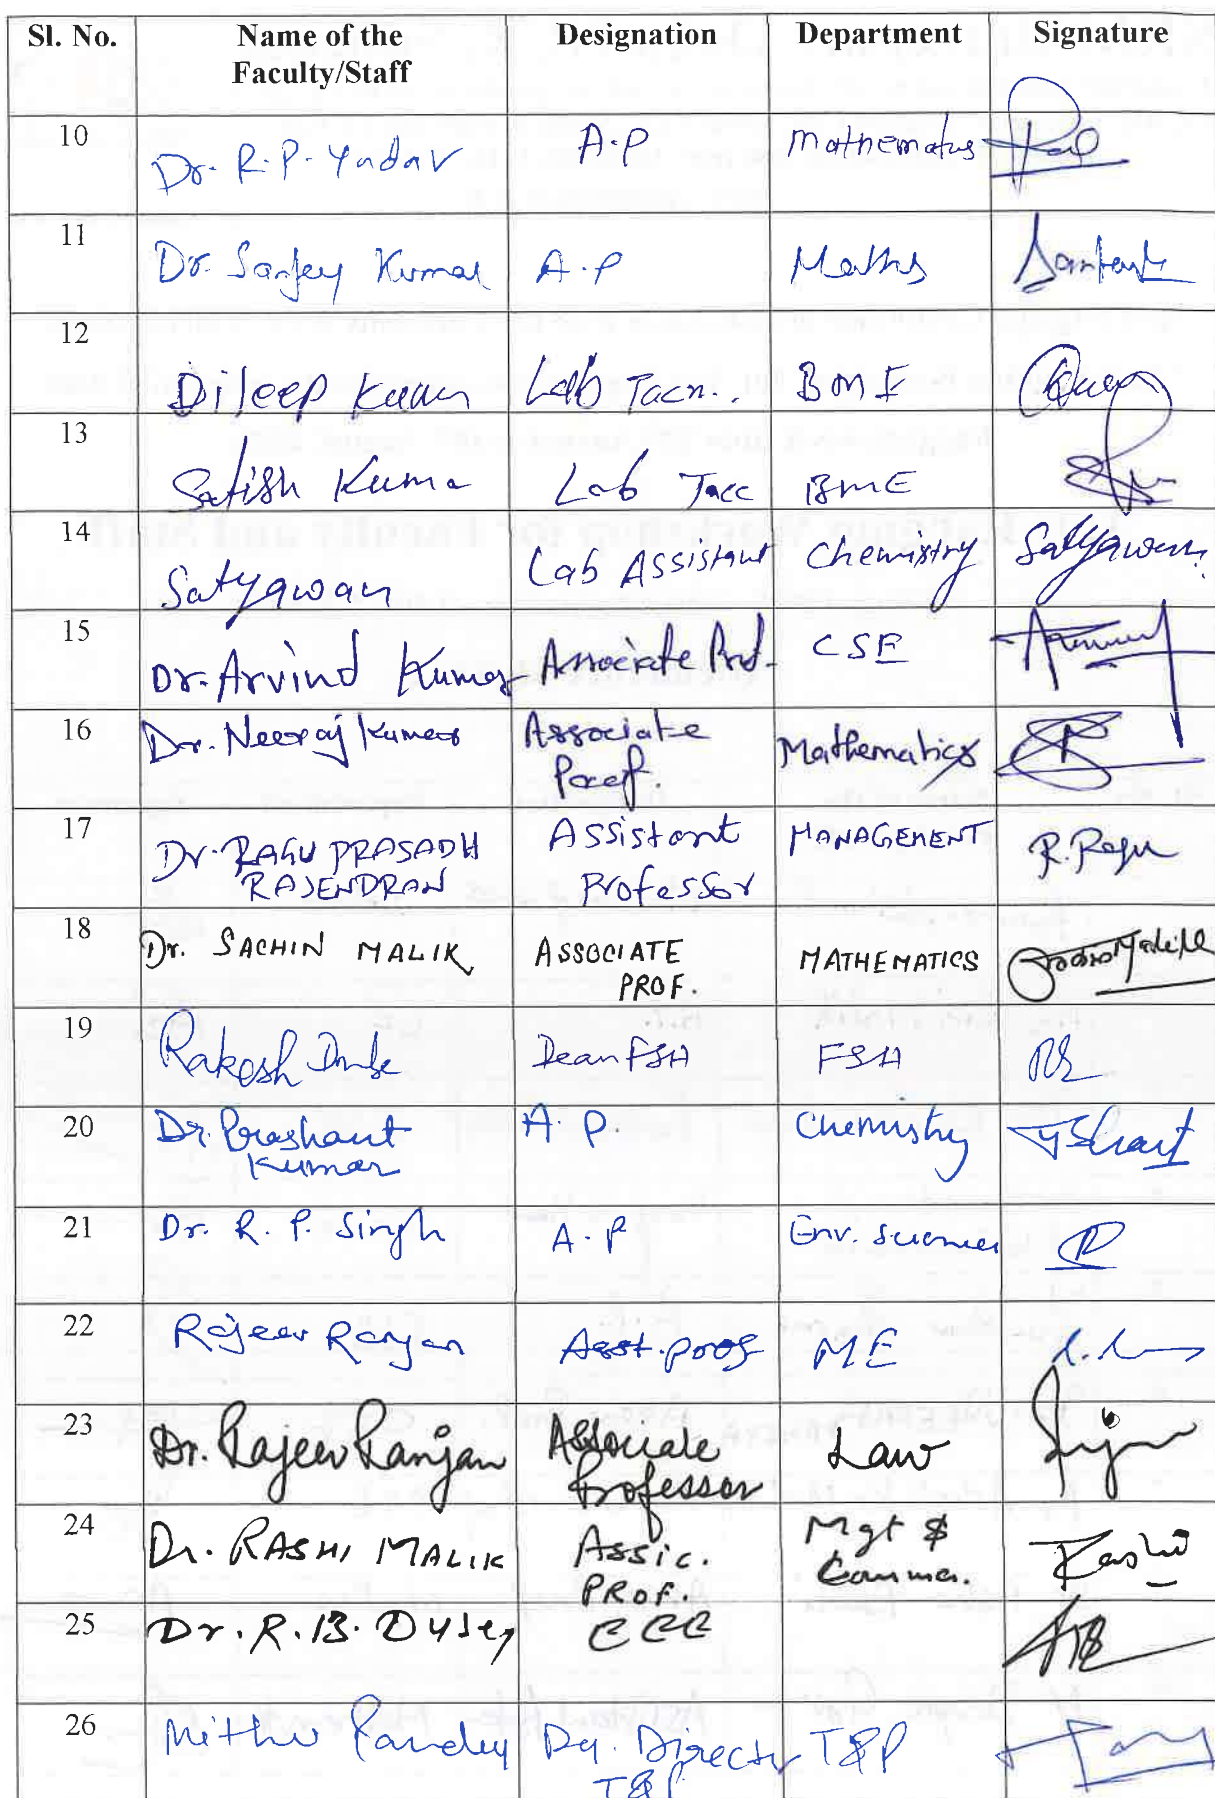 Sl. No. Name of the Faculty/Staff Designation Department Signature
10 Dr. R. P. Yadav A.P Mathematics
11 Dr. Sanjey Kumar A.P Maths
12 Dileep Kumar Lab Tacn.. BME
13 Satish Kuma Lab Tacc BME
14 Satyawan Lab Assistant Chemistry Satyawan
15 Dr. Arvind Kumar Associate Prof. CSE
16 Dr. Neeraj Kumar Associate Prof. Mathematics
17 Dr. RAGU PRASADH RAJENDRAN Assistant Professor MANAGEMENT R. Ragu
18 Dr. SACHIN MALIK ASSOCIATE PROF. MATHEMATICS
19 Rakesh Dean FSH FSH
20 Dr. Prashant Kumar A. P. Chemistry
21 Dr. R. P. Singh A. P Env. Sciences
22 Rajeev Ranjan Asst. Prof ME
23 Dr. Rajeev Ranjan Associate Professor Law
24 Dr. RASHI MALIK Assic. PROF. Mgt & Comme. Rashi
25 Dr. R. B. CCC
26 Mithu Pandey Dy. Director T&P T&P